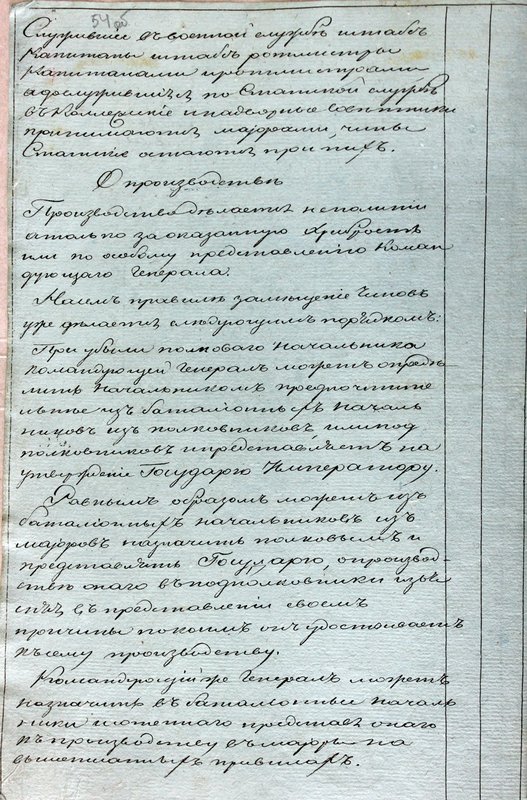 54 об
Служившие въ военной службѣ штабъ
Капитаны штабъ ротмистры
Капитанами и ротмистрами
а дослужившіеся по Статской службѣ
въ Коллежскіе и надворные совѣтники
принимаются маіорами, чины
Статскіе остаются при нихъ.
О производствѣ
Производство дѣлается не по линіи
а только за оказанную храбрость
или по особому представленію Коман
дующаго Генерала.
На семъ правилѣ замѣщеніе Чиновъ
уже дѣлается слѣдующимъ порядкомъ:
При убыли полковаго начальника
командующій Генералъ можетъ опредѣ
лить начальникомъ предпочтите
льнѣе изъ баталіонныхъ началь
никовъ изъ полковниковъ или под
полковниковъ и представляетъ на
утвержденіе Государю Императору.
Равнымъ образомъ можетъ изъ
баталіонныхъ начальниковъ изъ
маіоровъ назначить полковымъ и
представлять Государю, о производ-
ствѣ онаго въ подполковники изъяс
няя въ представленіи своемъ
причины по коимъ онъ удостоиваетъ
къ сему производству.
Командующій же Генералъ можетъ
назначить въ баталіонные началь
ники и онаго
къ производству въ маіоры на
вышеписанныхъ правилахъ.